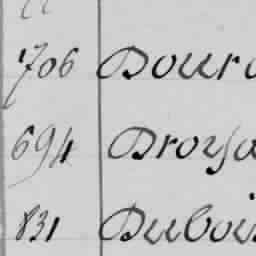 706 Dour
694 Droy
831 Dubois